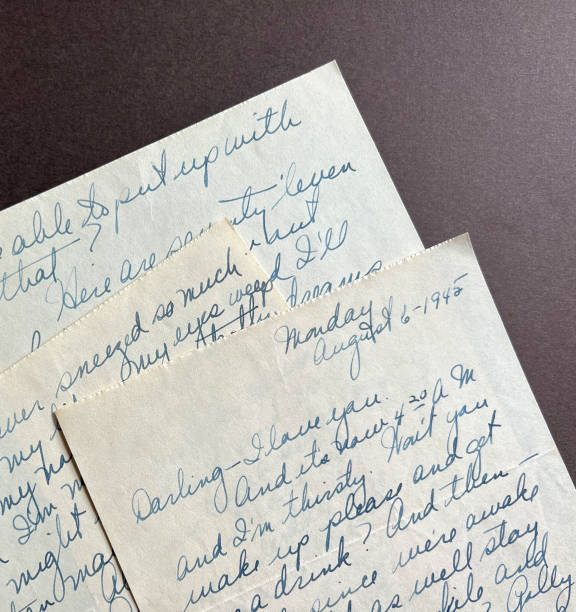 able to put up with
that?
Here are seventy 'leven
but
I'll
dreams
ever sneezed so much
my eyes weep
my
my
I'm
might
man
Monday
August 6-1945
Darling - I love you.
And it's now 4 20 A M
and I'm thirsty. Won't you
wake up please and get
a drink? And then -
since we're awake
as well stay
and